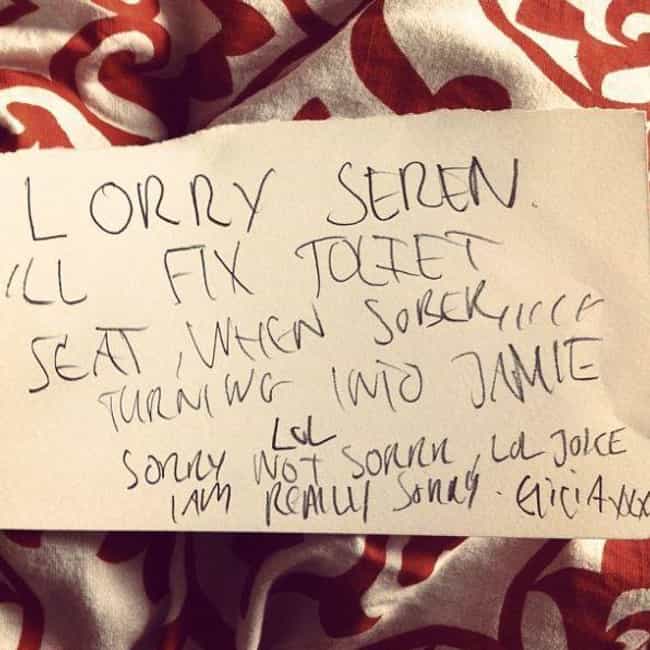 LORRY SEREN.
I'LL FIX TOLIET
SEAT, WHEN SOBER,,,,,,
TURNING INTO JAMIE
LOL
SORRY NOT SORRR, LOL JOKE
I AM REALLY SORRY. xxx